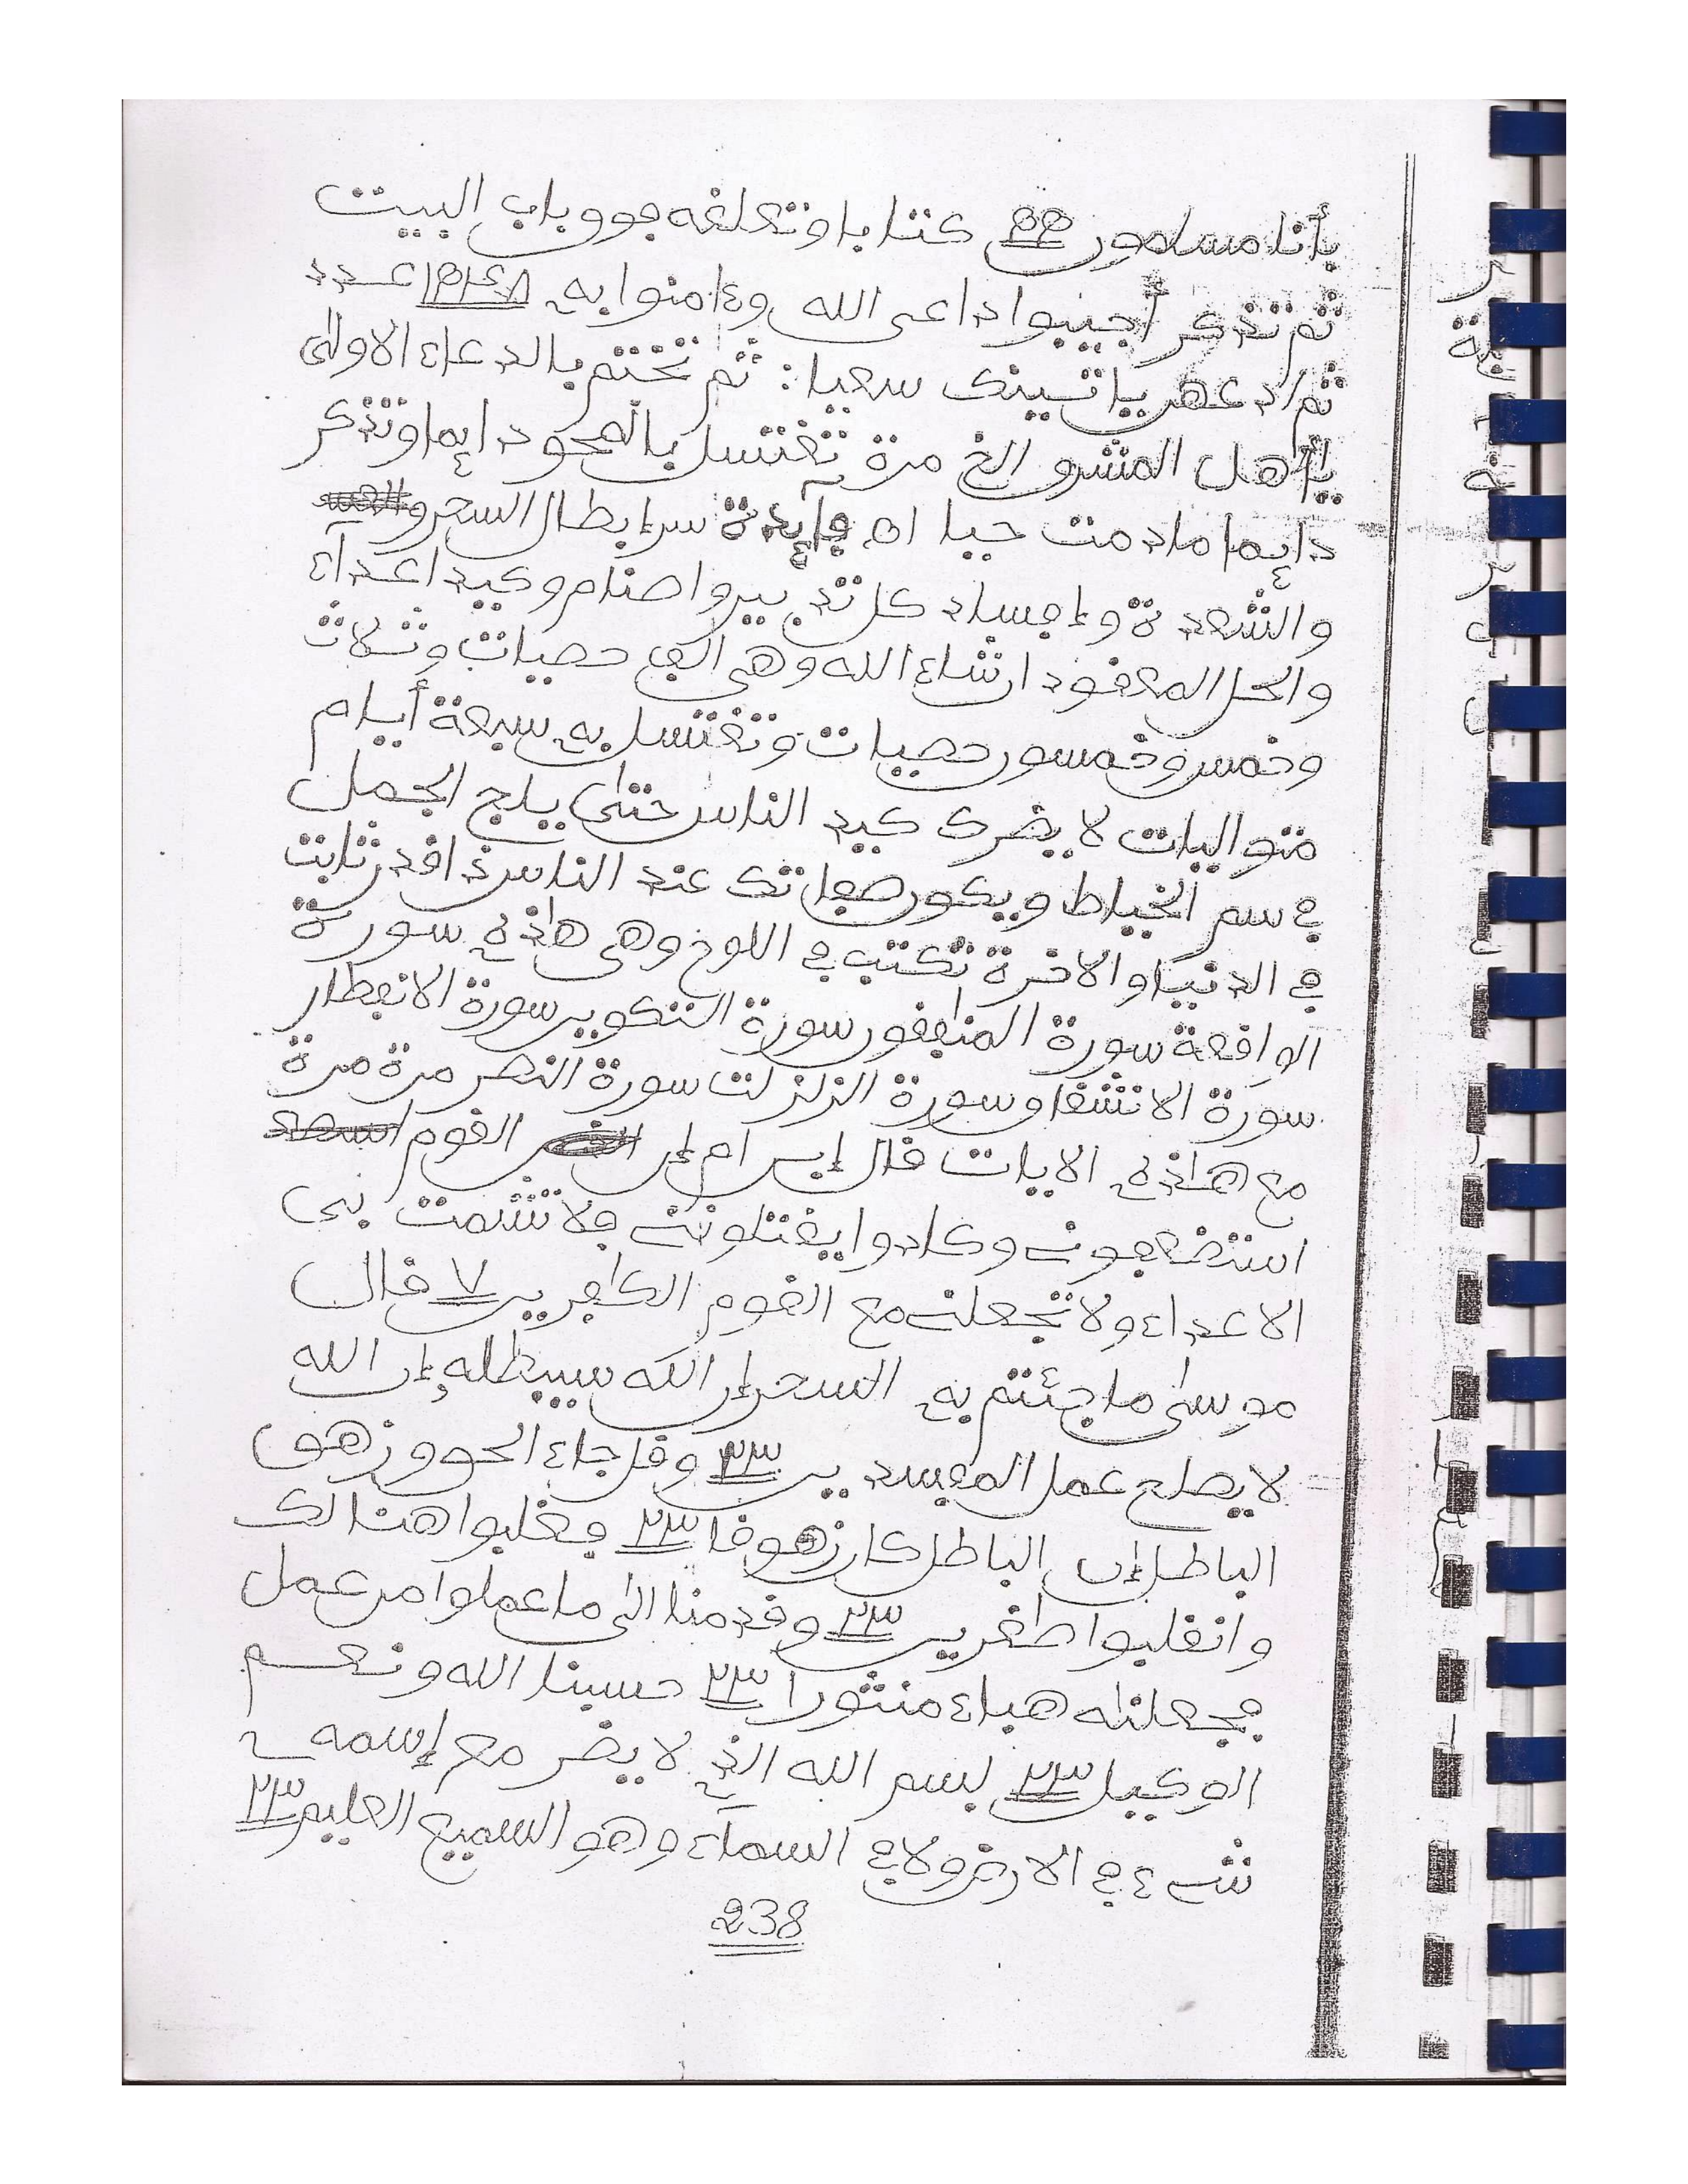 بأنا مسلمون كتابا وتعلقه فوق باب البيت
ثم تذكر أجيبوا داعى الله وءامنوا به عدد
ثم ادعهن ياتينك سعيا: ثم تختتم بالدعاء الاولى
يا أهل المشرق الخ مرة تغتسل بالمحو دايما وتذكر
دايما مادمت حيا اه فايدة سر ابطال السحر و
والشعدة وإفساد كل تدبير واصنام وكيد اعداء
والحل المعقود ان شاء الله وهى ألف حصيات وثلاث
وخمس وخمسون حصيات وتغتسل به سبعة أيام
متواليات لا يضرك كيد الناس حتى يلج الجمل
في سم الخياط ويكون صفاتك عند الناس ذا قدر ثابت
في الدنيا والاخرة تكتب في اللوح وهى هاذه سورة
الواقعة سورة المنطفقون سورة التكوير سورة الانفطار
سورة الانشقاق سورة الزلزلت سورة النصر مرة مرة
مع هاذه الايات قال إبن ام إن القوم
استضعفونے وكادوا يقتلوننے فلا تشمت بى
الاعداء ولا تجعلنے مع القوم الكافرين ٧ قال
موسى ما جئتم به السحر إن الله سيبطله إن الله
لا يصلح عمل المفسدين ٢٣ وقل جاء الحق وزهق
الباطل إن الباطل كان زهوقا ٢٣ فغلبوا هنالك
وانقلبوا صغرين ٢٣ وقدمنا الى ما عملوا من عمل
فجعلناه هباء منثورا ٢٣ حسبنا الله ونعم
الوكيل ٢٣ بسم الله الذے لا يضر مع إسمه
شےء في الارض ولا في السماء وهو السميع العليم ٢٣
238